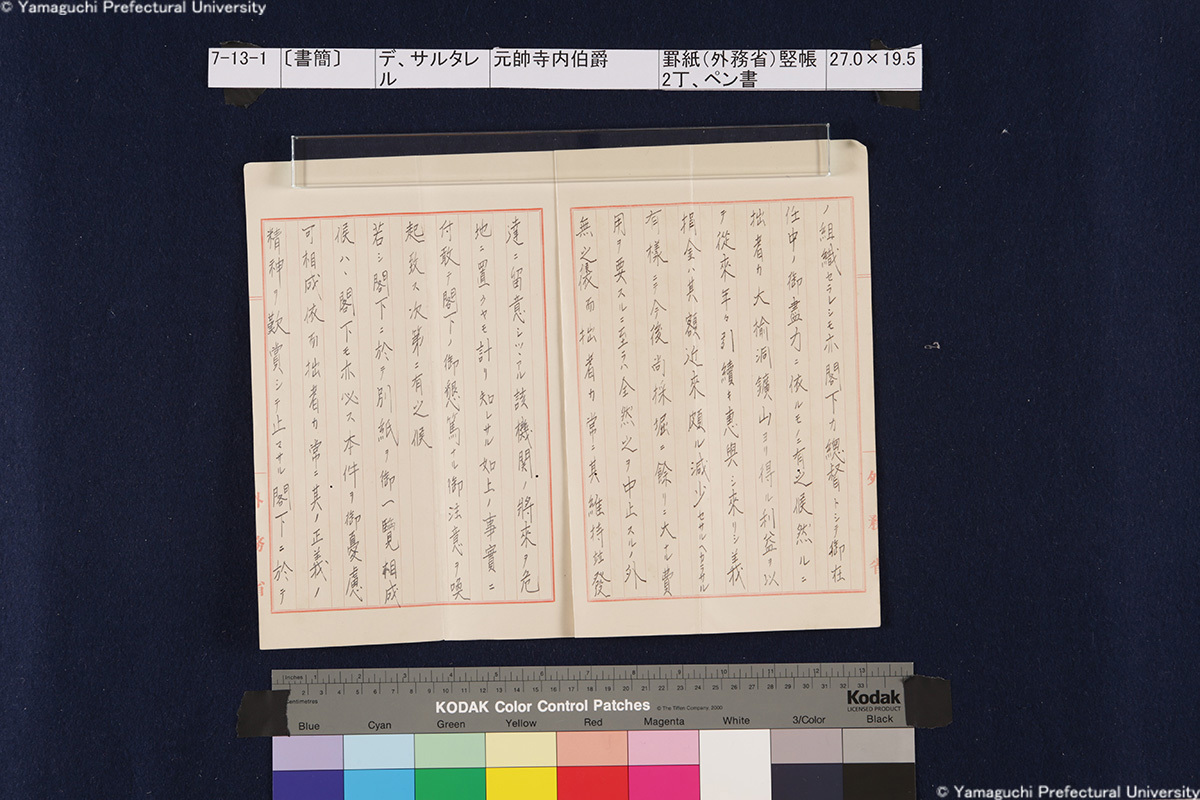 © Yamaguchi Prefectural University
7-13-1
〔書簡〕
デ、サルタレ
ル
元帥寺内伯爵
罫紙(外務省)竪帳
2丁、ペン書
27.0×19.5
ノ組織セラレシモ亦閣下カ總督トシテ御在
任中ノ御盡力ニ依ルモノニ有之候然ルニ
拙者カ大楡洞鑛山ヨリ得ル利益ヲ以
テ從來年々引續キ惠與シ來リシ義
捐金ハ其額近來頗ル減少セサルヘカラサル
有樣ニテ今後尚採堀ニ餘リニ大ナル費
用ヲ要スルニ至ラハ全然之ヲ中止スルノ外
無之儀而拙者カ常ニ其維持竝發
達ニ留意シツヽアル該機関ノ將來ヲ危
地ニ置クヤモ計リ知レサル如上ノ事實ニ
付敢テ閣下ノ御懇篤ナル御注意ヲ喚
起致ス次第ニ有之候
若シ閣下ニ於テ別紙ヲ御一覽相成
候ハヽ閣下モ亦必ス本件ヲ御憂慮
可相成、依而拙者カ常ニ其ノ正義ノ
精神ヲ歎賞シテ止マサル閣下ニ於テ
外務省
外務省
inches
centimetres
KODAK Color Control Patches
© The Tiffen Company, 2000
Kodak
LICENSED PRODUCT
Blue
Cyan
Green
Yellow
Red
Magenta
White
3/Color
Black
© Yamaguchi Prefectural University